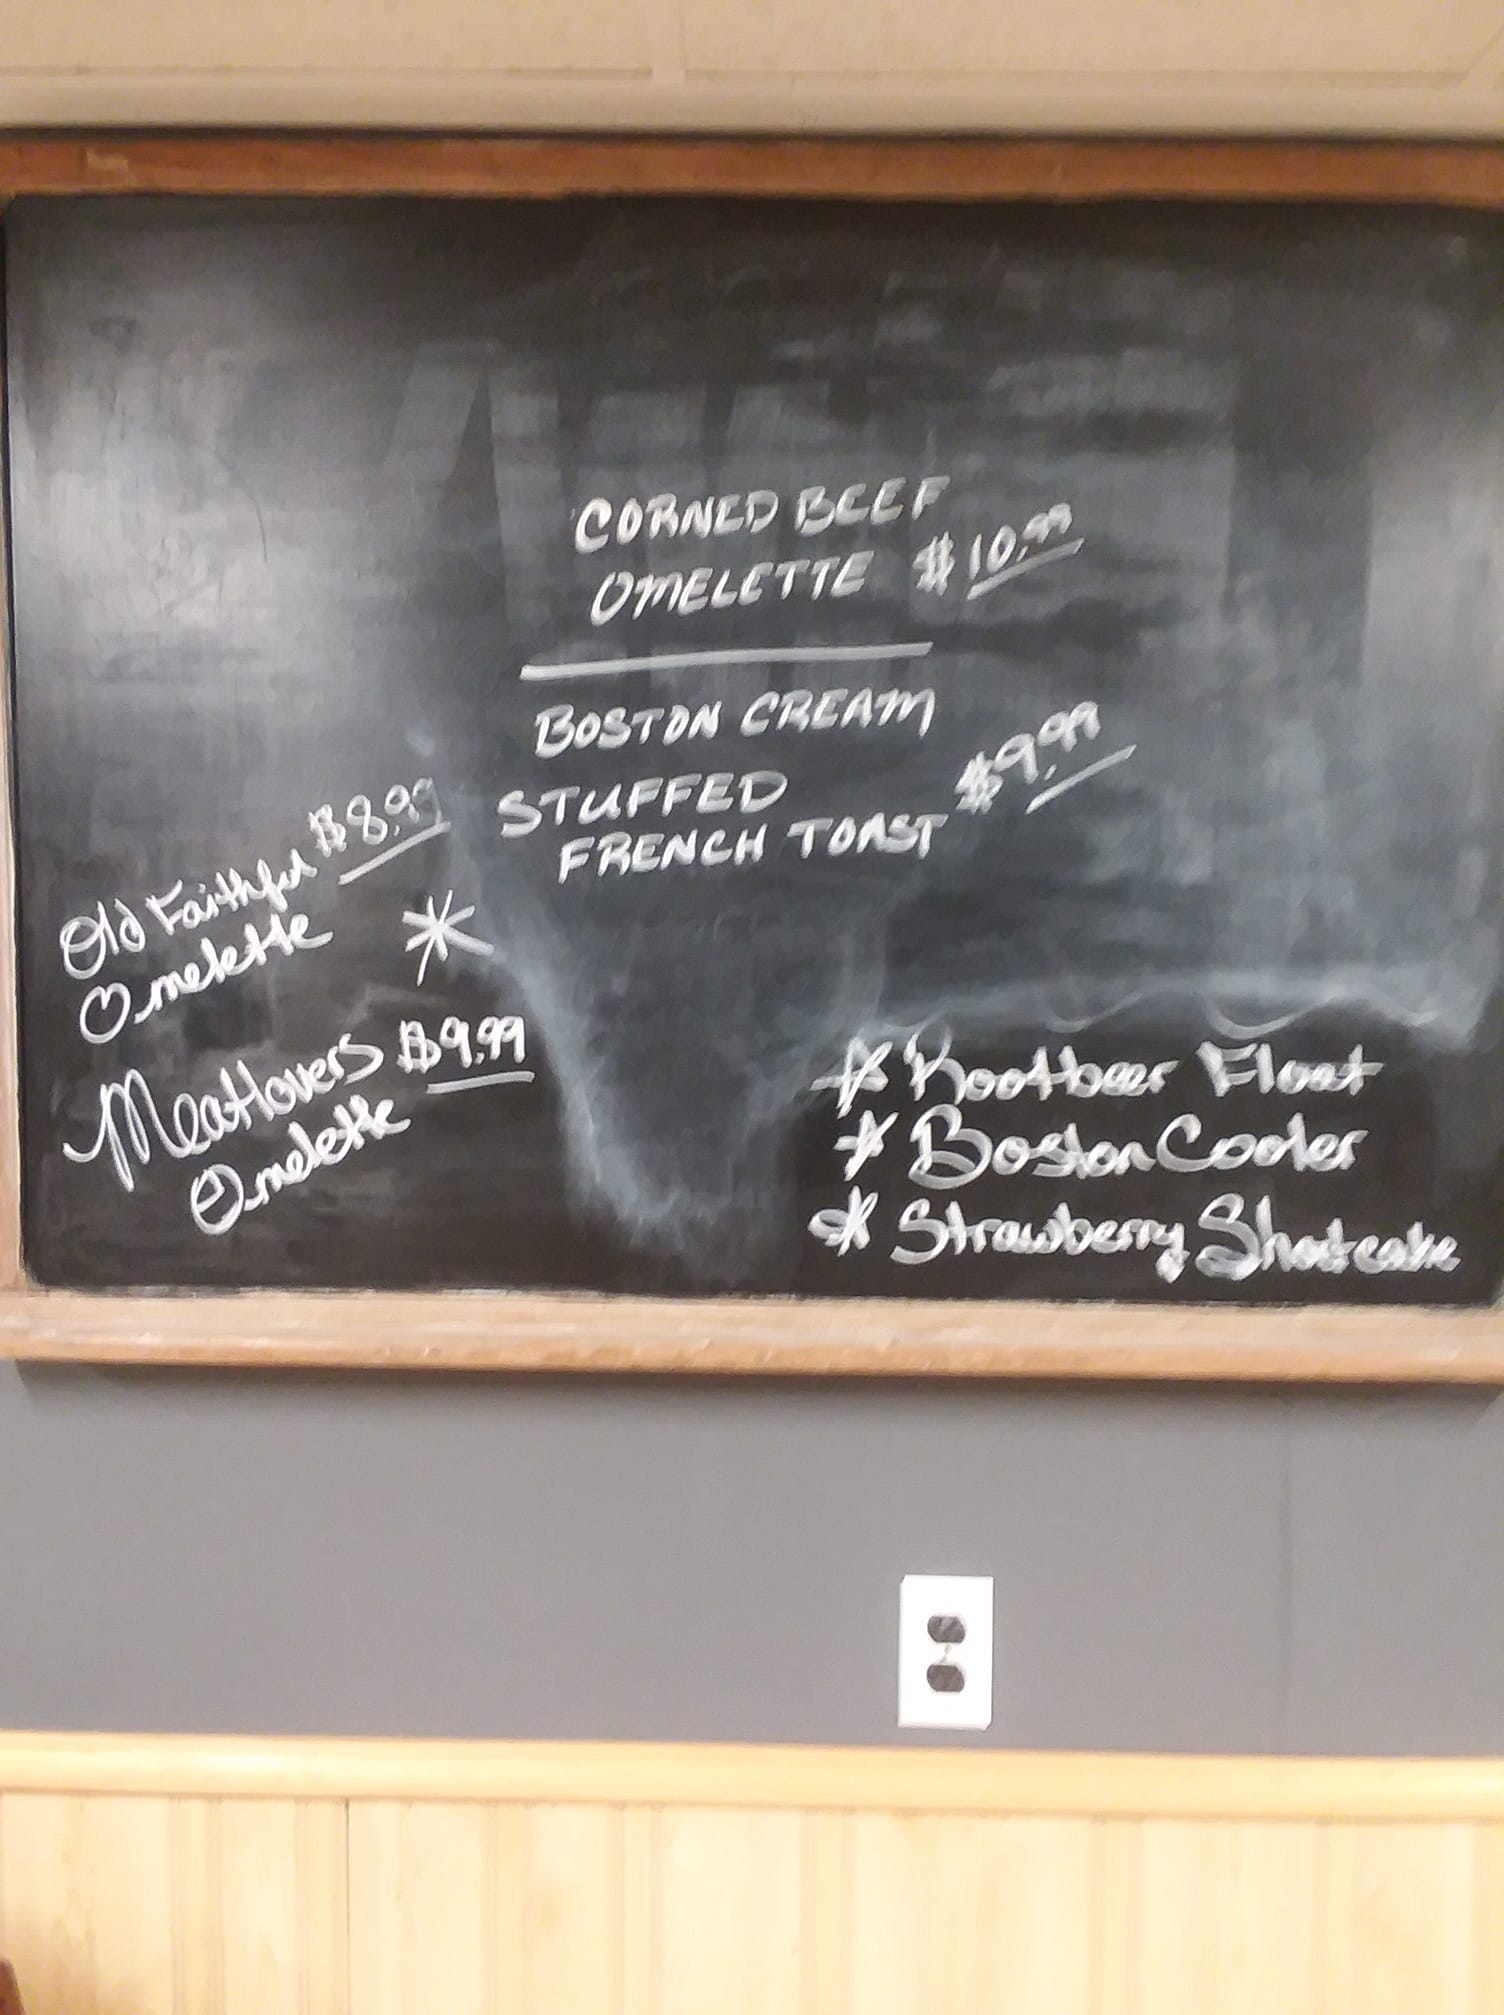 CORNED BEEF
OMELETTE $10.99
BOSTON CREAM
STUFFED
FRENCH TOAST $9.99
Old Faithful $8.99
Omelette
*
Meatlovers $9.99
Omelette
* Rootbeer Float
* Boston Cooler
* Strawberry Shortcake